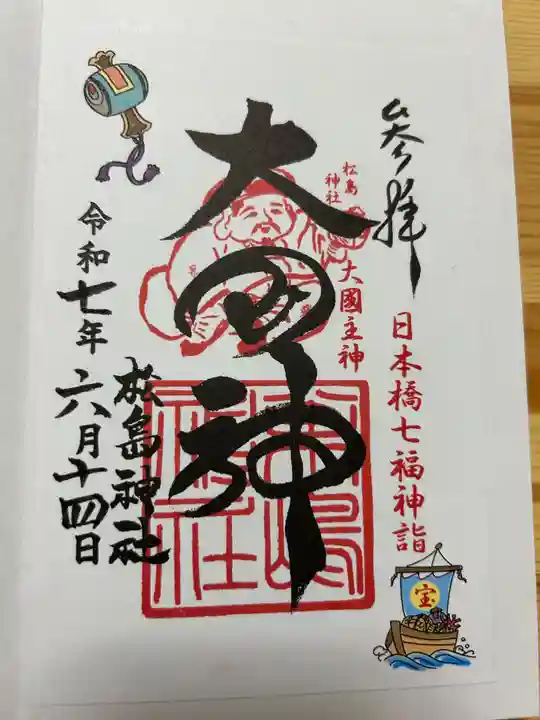 参拝
日本橋七福神詣
松島
神社
大國主神
大国神
松島神社
松島神社
令和七年六月十四日
宝